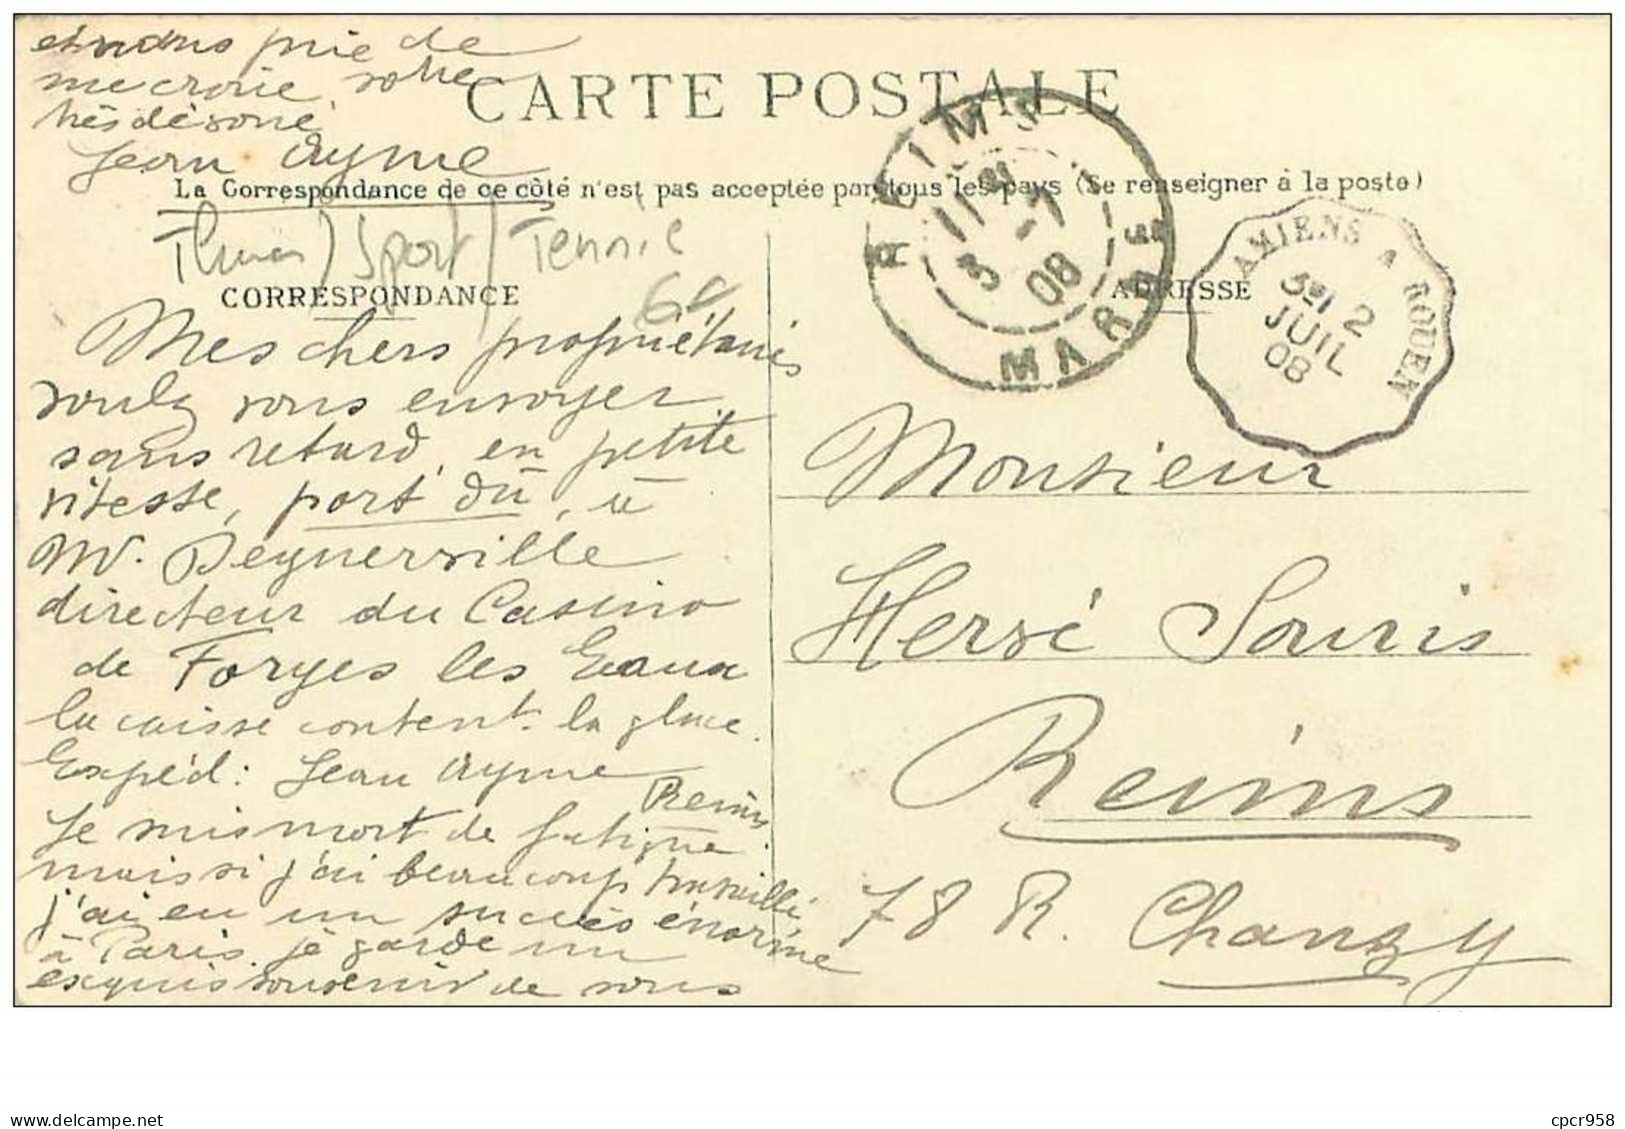 et vous prie de
me croire, votre
très dévoué
Jean Ayme
CARTE POSTALE
La Correspondance de ce côté n'est pas acceptée par tous les pays (Se renseigner à la poste)
Thèmes / Sport / Tennis
6€
CORRESPONDANCE
ADRESSE
REIMS
3 -7
08
MARNE
AMIENS A ROUEN
2
JUIL
08
Mes chers propriétaires
voulez vous envoyer
sans retard, en petite
vitesse, port dû, à
Mr. Deynerville
directeur du Casino
de Forges les Eaux
la caisse content. la glace.
Expéd: Jean Ayme
Reims
Je suis mort de fatigue
mais si j'ai beaucoup travaillé
j'ai eu un succès énorme
à Paris. je garde un
exquis souvenir de vous
Monsieur
Hervé Souris
Reims
78 R. Chanzy
delcampe.net
cpcr958